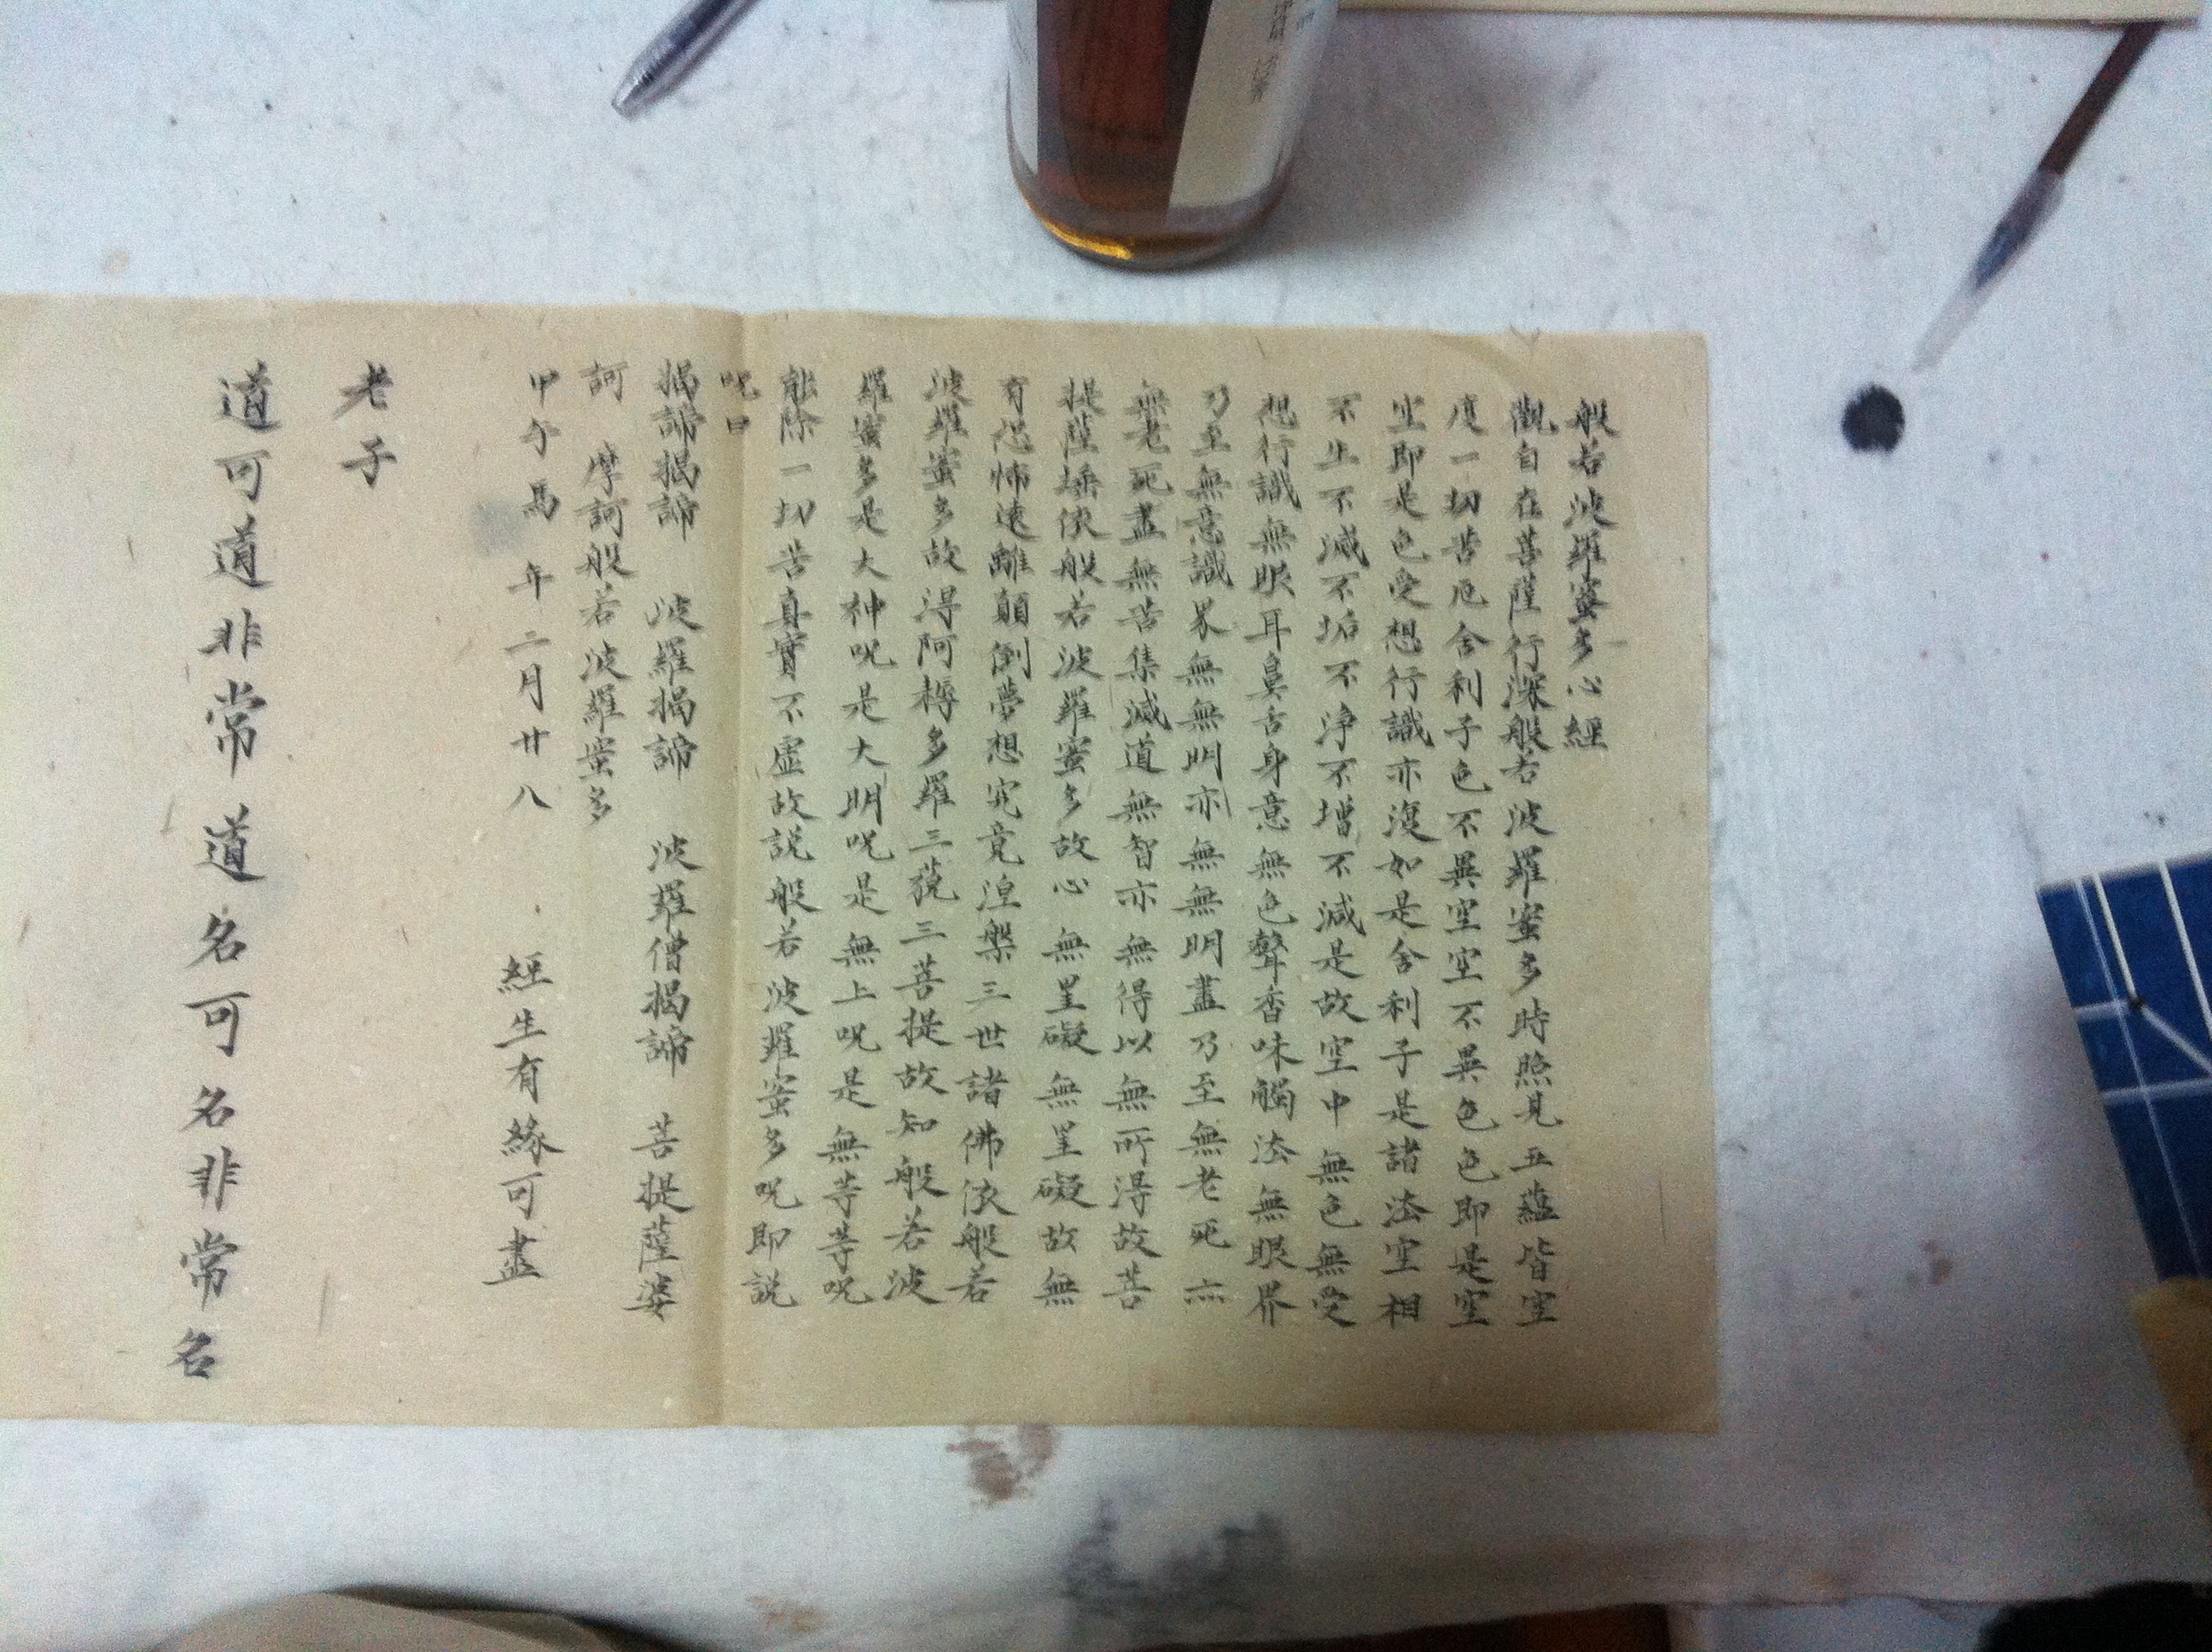 般若波羅蜜多心經
觀自在菩薩行深般若波羅蜜多時照見五蘊皆空
度一切苦厄舍利子色不異空空不異色色即是空
空即是色受想行識亦復如是舍利子是諸法空相
不生不滅不垢不淨不增不減是故空中無色無受
想行識無眼耳鼻舌身意無色聲香味觸法無眼界
乃至無意識界無無明亦無無明盡乃至無老死亦
無老死盡無苦集滅道無智亦無得以無所得故菩
提薩埵依般若波羅蜜多故心無罣礙無罣礙故無
有恐怖遠離顛倒夢想究竟涅槃三世諸佛依般若
波羅蜜多故得阿耨多羅三藐三菩提故知般若波
羅蜜多是大神咒是大明咒是無上咒是無等等咒
能除一切苦真實不虛故說般若波羅蜜多咒即說
咒曰
揭諦揭諦 波羅揭諦 波羅僧揭諦 菩提薩婆
訶 摩訶般若波羅蜜多
甲午馬年二月廿八 經生有 可盡
老子
道可道非常道名可名非常名